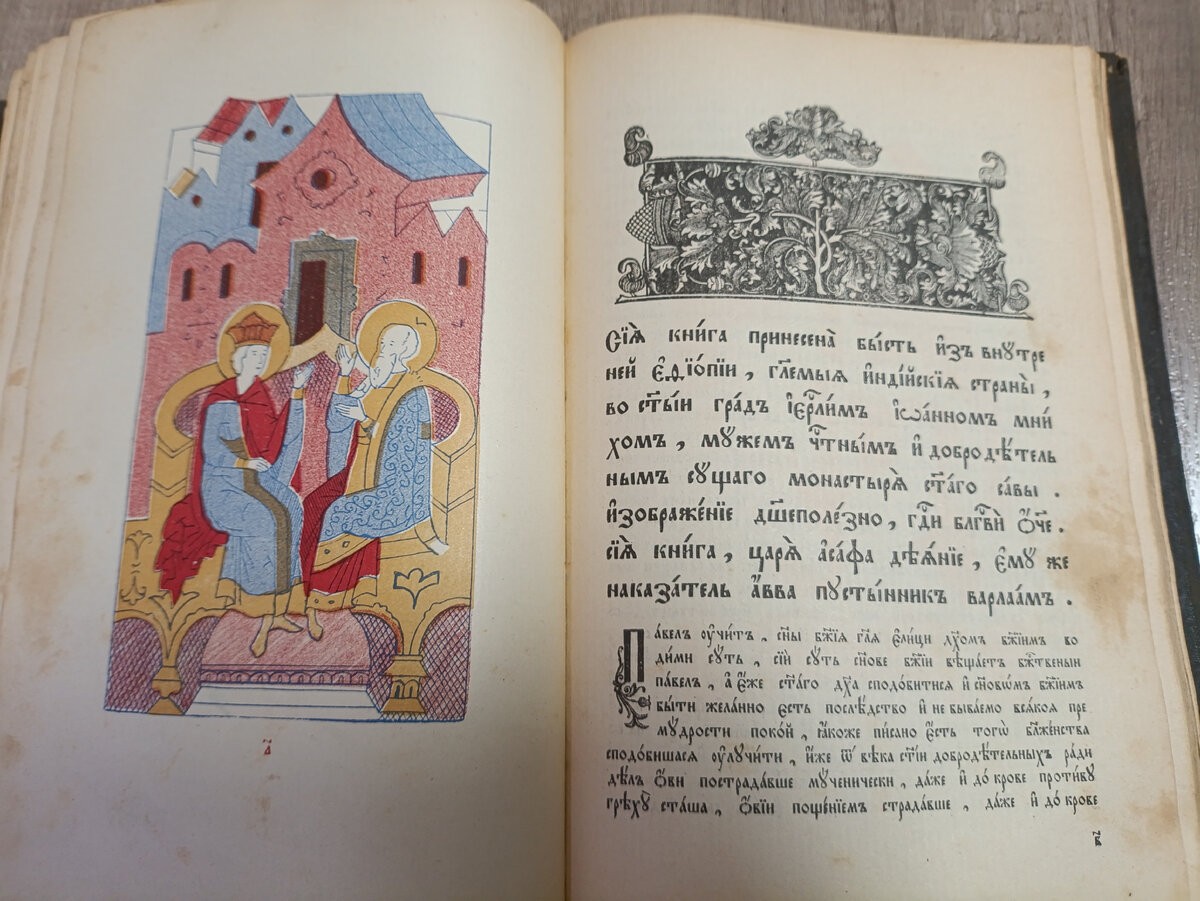 д҃
Сїѧ̀ кни́га принесена̀ бы́сть и҆зъ внутре
ней є҆ѳїо́пїи , гл҃емыѧ и҆ндї́йскїѧ страны̀ ,
во ст҃ы́й гра́дъ і҆ер҇ли́мъ і҆ѡа́нномъ мни́
хомъ , му́жемъ чт҇нымъ и҆ добродѣ́тель
нымъ су́щаго монастырѧ̀ ст҃а́го са́вы .
и҆з̾ображе́нїе дш҃еполе́зно , гд҇и бл҇гвѝ ѻ҆́ч҃е .
сїѧ̀ кни́га , царѧ̀ а҆са́фа дѣѧ́нїе , є҆му́ же
наказа́тель а҆́вва пусты́нникъ варлаа́мъ .
Па́велъ ѹ҆чи́тъ , сн҃ы бж҃їѧ гл҃ѧ є҆ли́цы дх҃омъ бж҃їимъ во
ди́ми су́ть , сі́й су́ть сн҃ове бж҃їи вѣща́етъ бж҇твеный
па́велъ , а҆ є҆́же ст҃а́го дх҃а сподо́битисѧ и҆ сн҃овѡ́мъ бж҃їимъ
бы́ти жела́нно є҆сть послѣ́дство и҆ не быва́емо всѧ́коѧ пре
му́дрости поко́й , ꙗ҆́коже пи́сано є҆́сть тогѡ̀ бл҃же́нства
сподо́бишасѧ ѹ҆лучи́ти , и҆̀же ѿ вѣ́ка ст҃і́и добродѣ́тельныхъ ра́ди
дѣ́лъ ѻ҆́ви пострада́вше му́ченически , да́же и҆ до́ крове проти́ву
грѣху̀ ста́ша , ѻ҆́вїи поще́нїемъ страда́вше , да́же и҆ до́ крове
в҃